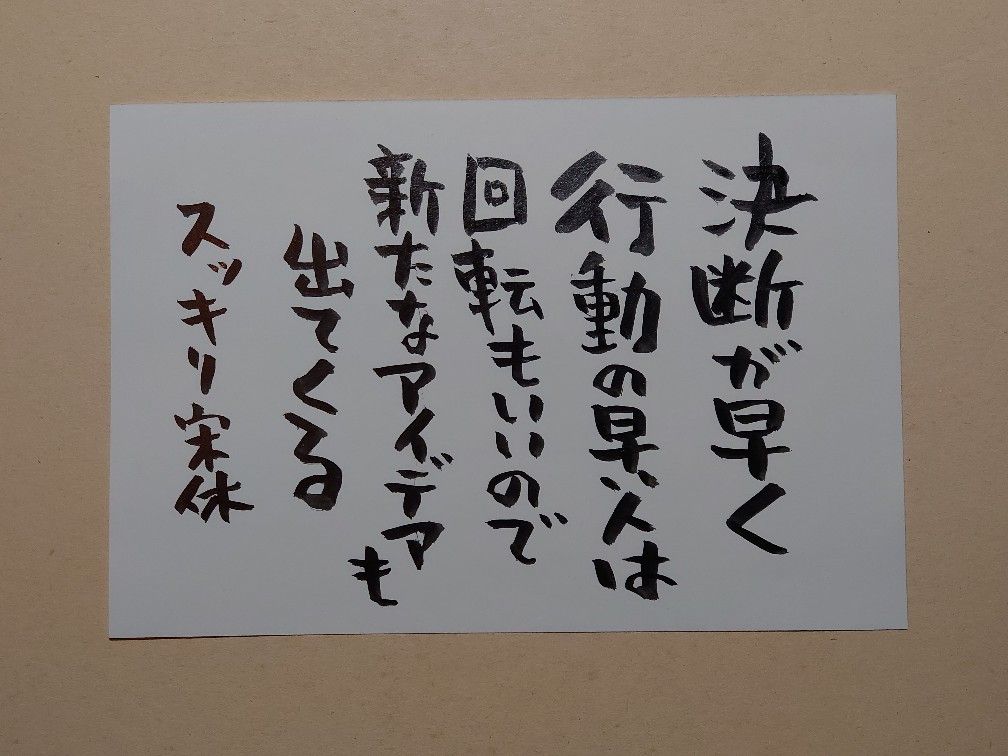 決断が早く
行動の早い人は
回転もいいので
新たなアイデアも
出てくる
スッキリ宗休